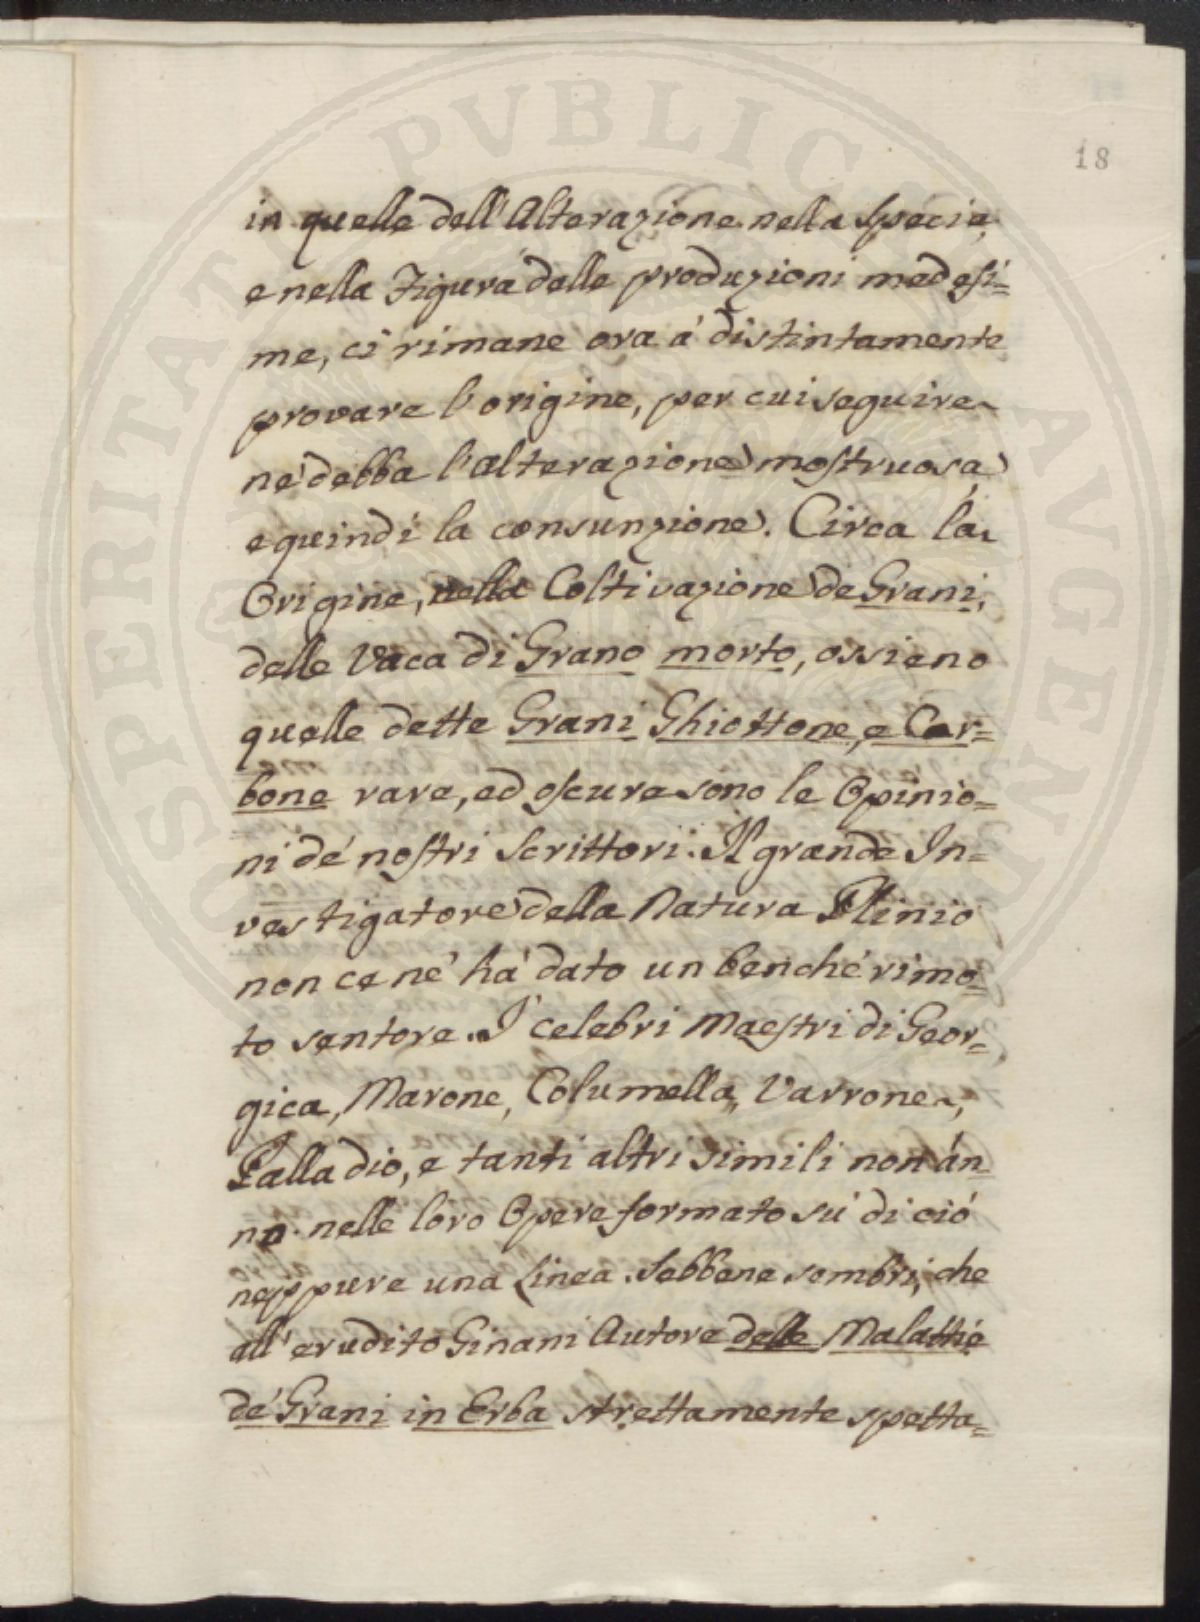 PROSPERITATI PVBLICAE AVGENDAE
18
in quelle dell'Alterazione nella Specie,
e nella Figura delle produzioni medesi=
me, ci rimane ora á distintamente
provare l'origine, per cui seguire
né debba l'alterazione mostruosa
e quindi la consunzione. Circa la
Origine, nella Coltivazione de Grani,
delle Vaca di Grano morto, ossieno
quelle dette Grani Ghiottone, e Car=
bone rare, ed oscure sono le Opinio=
ni dé nostri Scrittori. Il grande In=
vestigatore della Natura Plinio
non ce né há dato un benché rimo=
to sentore. I celebri Maestri di Geor=
gica, Marone, Columella, Varrone,
Palladio, e tanti altri simili non án=
no nelle loro Opere formato sú di ció
neppure una Linea. Sebbene sembri, che
all'erudito Ginani Autore delle Malattie
dé Grani in Erba strettamente spetta=